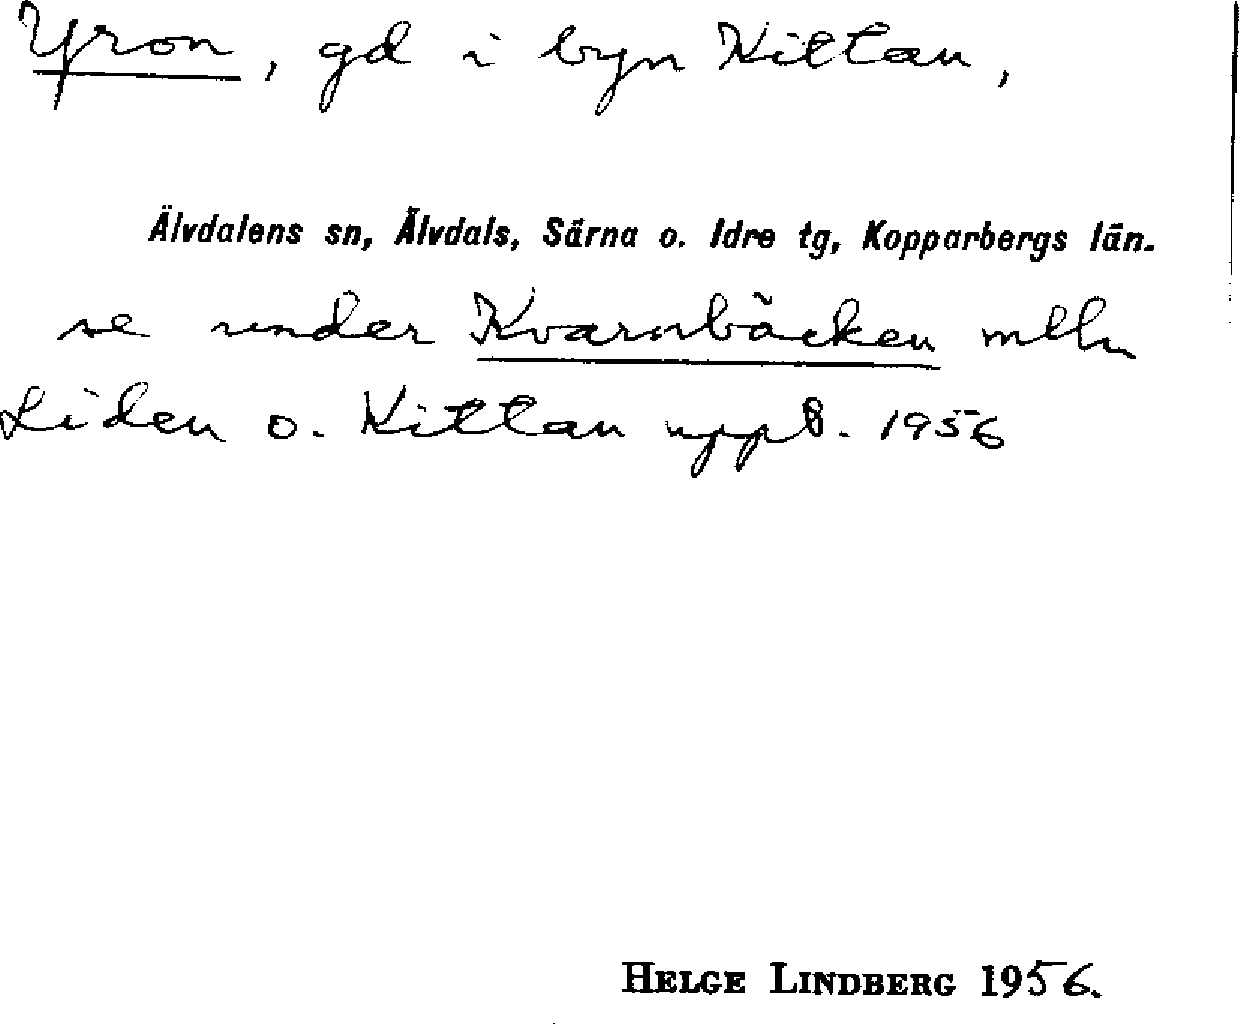 Yron, gd i byn Kittan,
Älvdalens sn, Älvdals, Särna o. Idre tg, Kopparbergs län.
se under Kvarnbäcken mlln
Liden o. Kittan uppt. 1956
HELGE LINDBERG 1956.